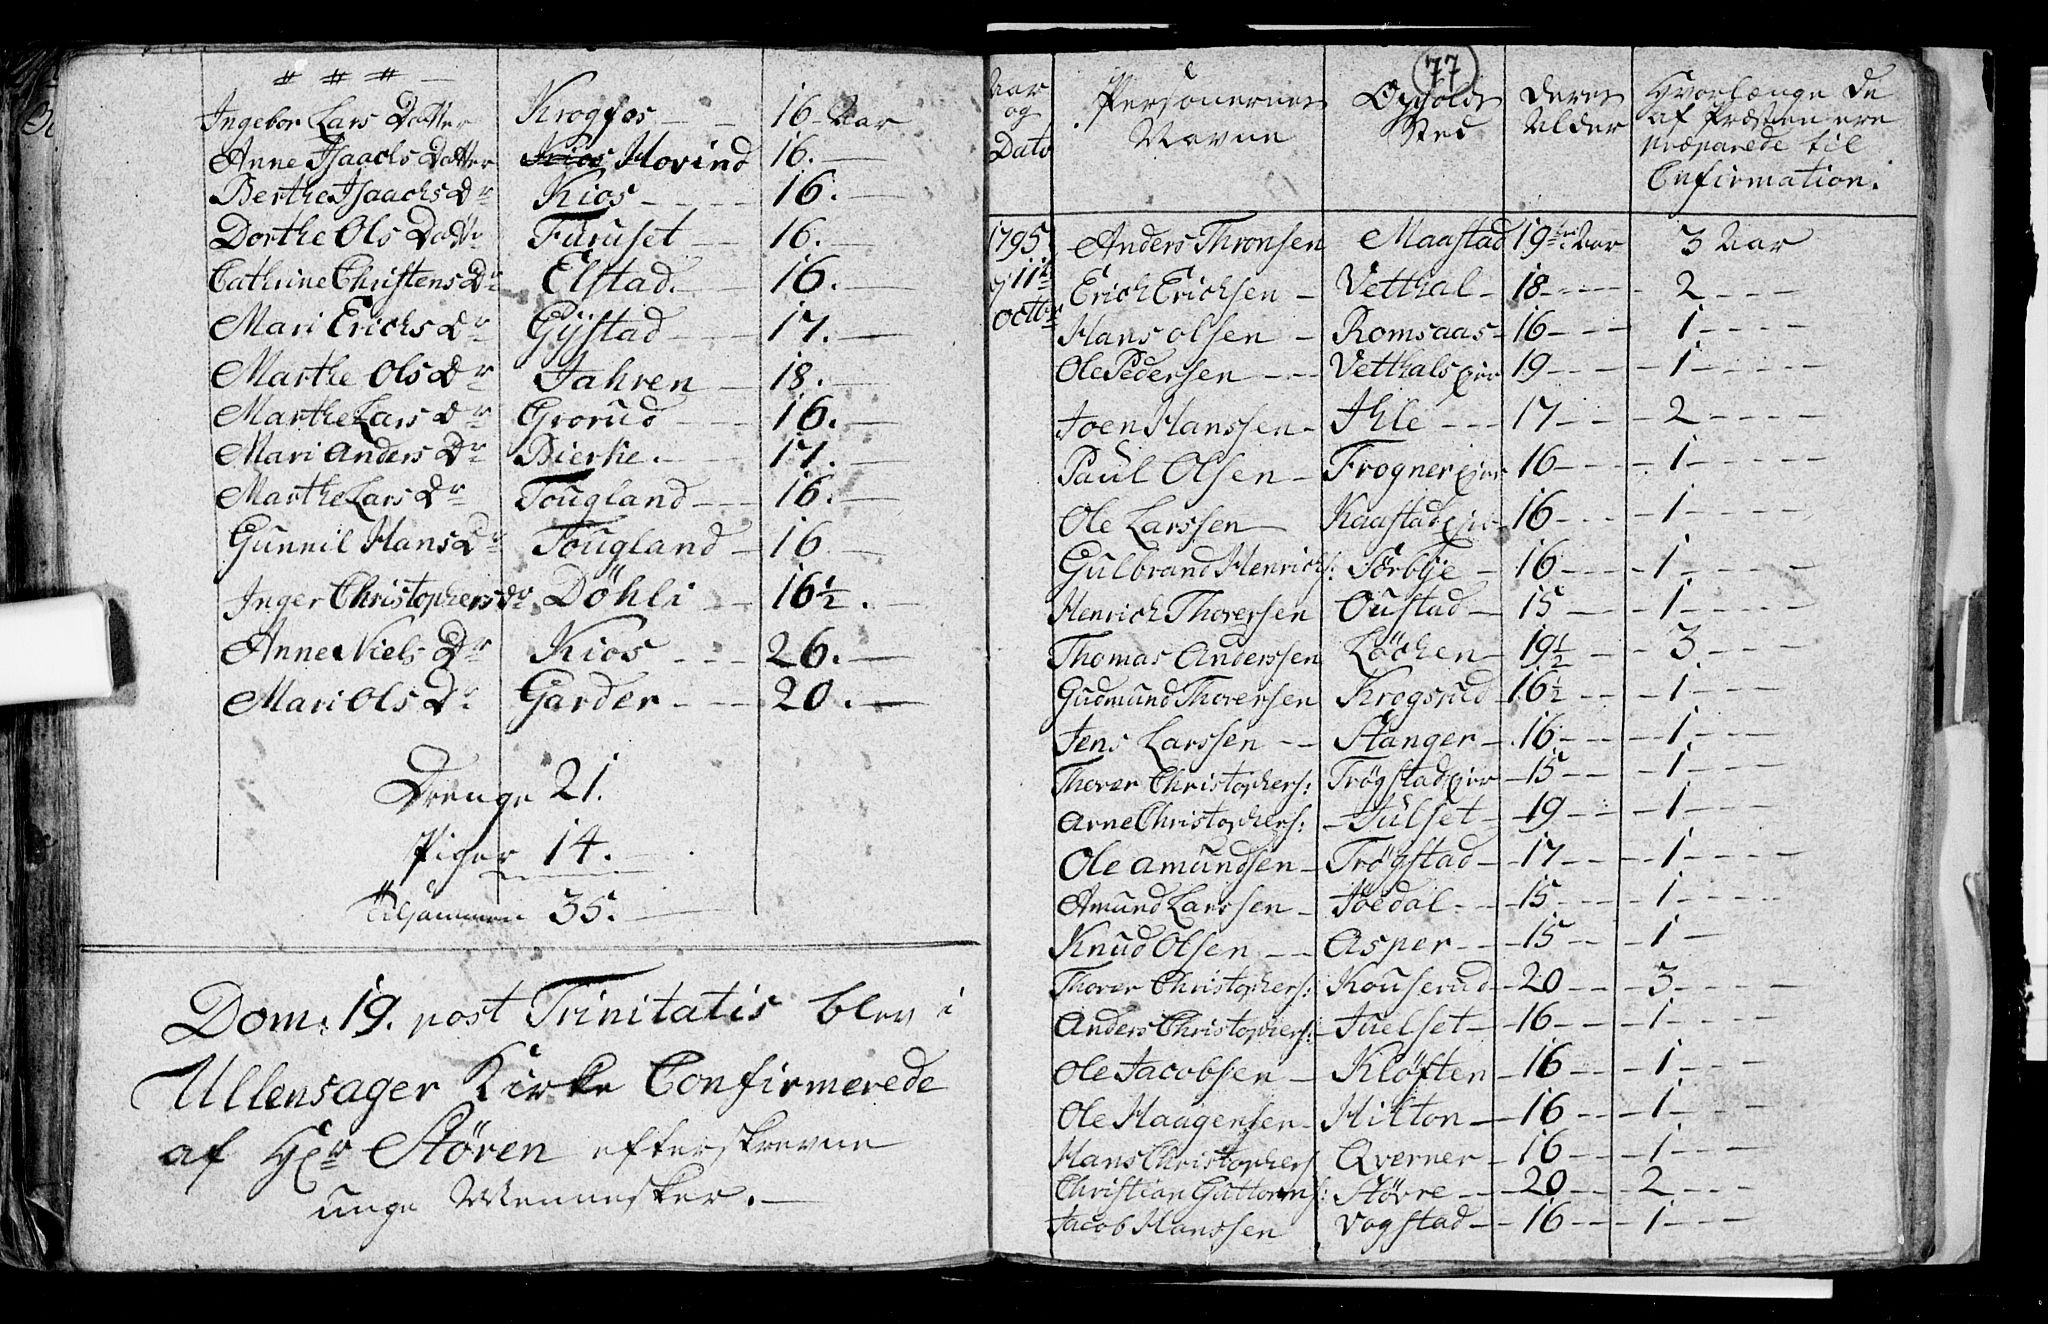 # # # —
Ingebor Lars Datter Krogfos — — 16 Aar
Anne Isaachs Datter Kios Hovind 16. —
Berthe Isaachs Dr Kios - - - - 16. —
Dorthe Ols Dattr Furuset — — 16. —
Cathrine Christens Dr Elstad. — — 16. —
Mari Erichs Dr Gÿstad — — 17. —
Marthe Ols Dr Jahren — 18. —
Marthe Lars Dr Grorud — — 16. —
Mari Anders Dr Bierke. — — 17. —
Marthe Lars Dr Tougland — — 16. —
Gunnil Hans Dr Tougland — 16 —
Inger Christophers Dr Döhli — — 16½. —
Anne Niels Dr Kios - - - 26. —
Mari Ols Dr Garder - - - 20. —
Drenge 21.
Piger 14. —
Tilsammen 35. —
Dom: 19. post Trinitatis blev i
Ullensager Kirke Confirmerede
af Hr Stören efterskrevne
unge Mennesker. —
77
Aar og Dato
Personernes Navne
Opholds Sted
Deres Alder
Hvorlænge de
af Præsten ere
præparede til
Confirmation.
1795 Anders Thronsen Maastad 19 Aar 3 Aar
d 11te Erich Erichsen — Vetthal — 18 - - - - 2 - - - -
Octbr Hans Olsen — Romsaas — 16 - - - 1 - - - -
Ole Pedersen - - - Vethals Eier 19 - - - 1 - - - -
Joen Hanssen — Ihle - - - 17 - - - 2 - - - -
Paul Olsen — Frogner Eier 16 - - - 1 - - - -
Ole Larssen — Kaastad Eier 16 - - - 1 - - - -
Gulbrand Henrichs: Sörbÿe — 16 - - - 1 - - - -
Henrich Thorersen Oustad — 15 - - - 1 - - - -
Thomas Anderssen Löchen — 19½ - - 3 - - - -
Gudmund Thorersen Krogsrud — 16½ - - 1 - - - -
Jens Larssen - - Stanger — 16 - - - 1 - - - -
Thorer Christophers: Trögstad Eier — 15 - - - 1 - - - -
Arne Christophers: — Julset — 19 - - - 1 - - - -
Ole Amundsen — Trögstad — 17 - - - 1 - - - -
Amund Larssen — Joedal - - 15 - - - 1 - - - -
Knud Olsen - - Asper - - 15 - - - 1 —
Thorer Christophers: Kouserud — 20 - - - 3 - - - -
Anders Christophers: Juelset — 16 - - - 1 - - - -
Ole Jacobsen — Klöften — 16 - - - 1 - - -
Ole Haagensen — Hilton — 16 - - - 1 - - -
Hans Christophers Qverner — 16 - - - 1 - - -
Christian Guttorms: Större - - 20 - - - 2 - - -
Jacob Hanssen Vogstad — 16 - - - 1 - - -